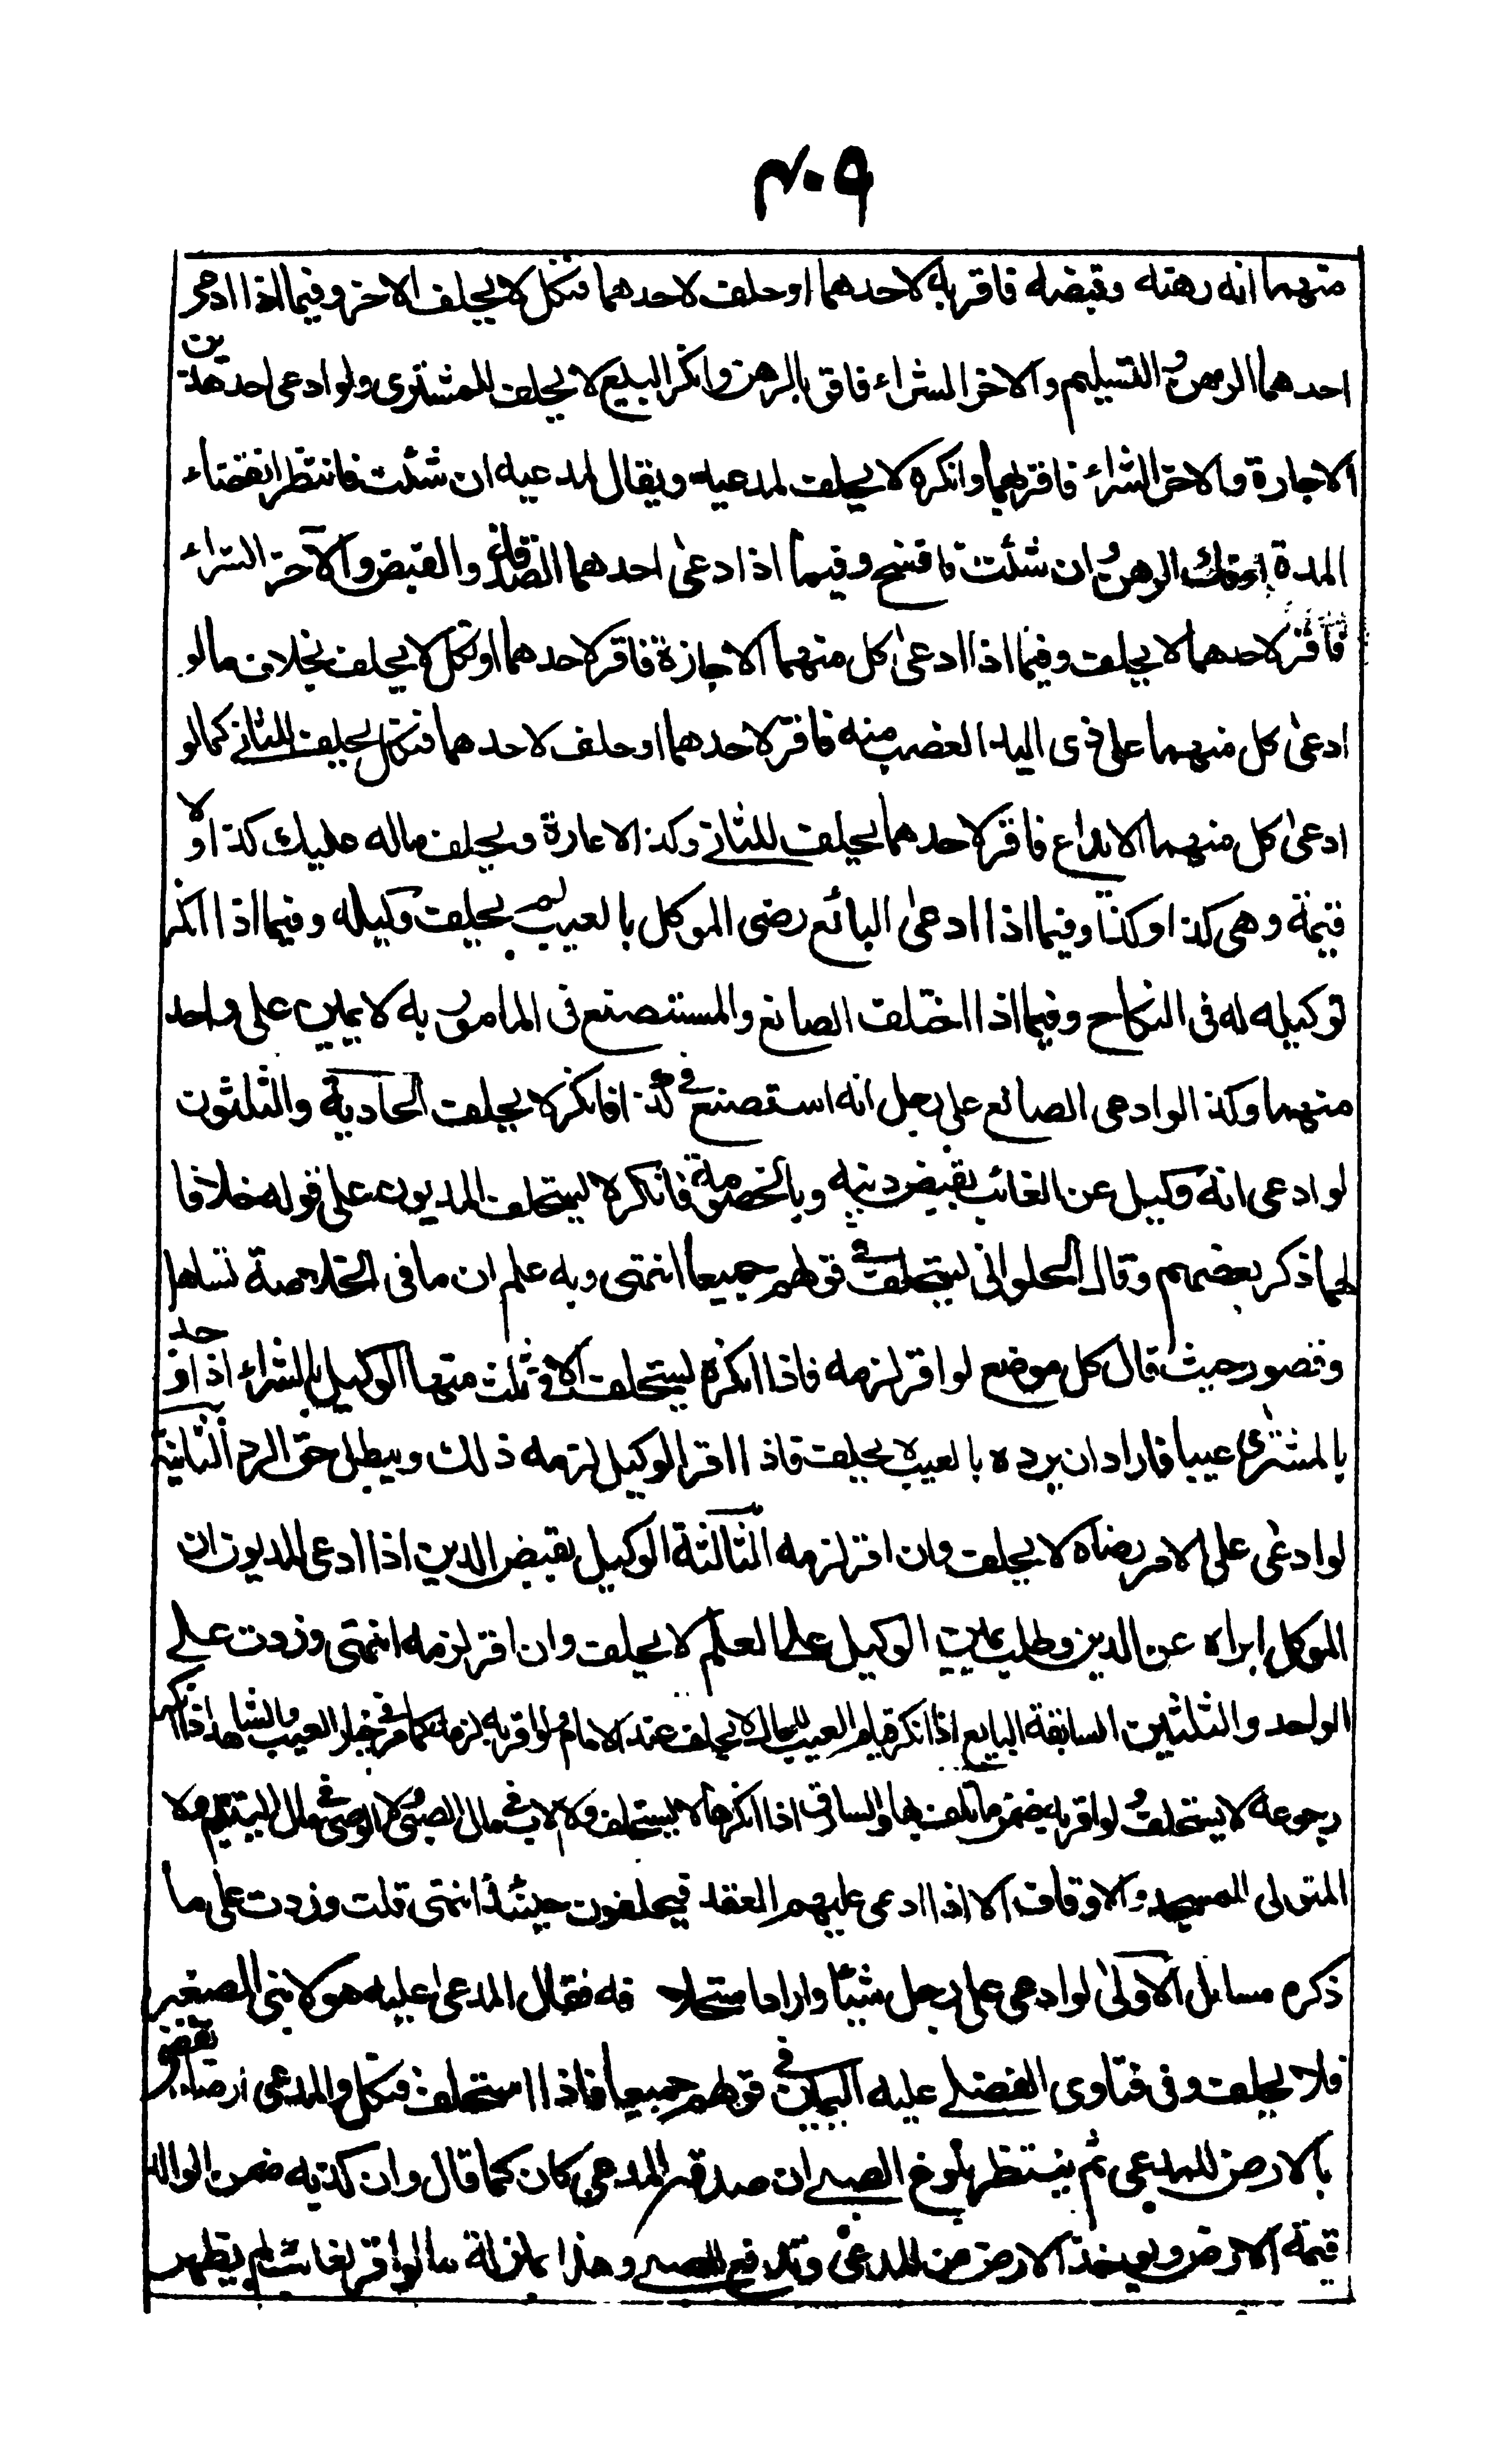 ٣٠٩
منهما انه رهنه وقبضه فاقر به لاحدهما او حلف لاحدهما فنكل لا يحلف للاخر وفيما اذا ادعى
احدهما الرهن والتسليم والاخر الشراء فاقر بالرهن وانكر البيع لا يحلف للمشترى ولو ادعى احد هذين
الاجارة والاخر الشراء فاقر بهما وانكره لا يحلف لمدعيه ويقال لمدعيه ان شئت فانتظر انقضاء
المدة او فك الرهن وان شئت فافسخ وفيما اذا ادعى احدهما الصدقة والقبض والآخر الشراء
فاقر لاحدهما لا يحلف وفيما اذا ادعى كل منهما الاجازة فاقر لاحدهما او نكل لا يحلف بخلاف ما لو
ادعى كل منهما على ذى اليد الغصب منه فاقر لاحدهما او حلف لاحدهما فنكل يحلف للثانى كما لو
ادعى كل منهما الايداع فاقر لاحدهما يحلف للثانى وكذا الاعارة ويحلف ماله عليك كذا ولا
قيمة وهى كذا وكذا وفيما اذا ادعى البائع رضى الموكل بالعيب لم يحلف وكيله وفيما اذا انكر
توكيله له فى النكاح وفيما اذا اختلف الصانع والمستصنع فى المامور به لا يمين على واحد
منهما وكذا لو ادعى الصانع على رجل انه استصنع فى كذا فانكر لا يحلف الحادية والثلثون
لو ادعى انه وكيل عن الغائب بقبض دينه وبالخصومة فانكر لا يستحلف المديون على قوله خلافا
لهما ذكر بعضهم وقال الحلوانى يستحلف فى قولهم جميعا انتهى وبه علم ان ما فى الخلاصة تساهل
وقصور حيث قال كل موضع لو اقر لزمه فاذا انكره يستحلف الا فى ثلث منها الوكيل بالشراء اذا وجد
بالمشترى عيبا فاراد ان يرده بالعيب لا يحلف فاذا اقر الوكيل لزمه ذلك ويبطل حق الرد الثانية
لو ادعى على الامر رضاه لا يحلف وان اقر لزمه الثالثة الوكيل بقبض الدين اذا ادعى المديون ان
الموكل ابراه عن الدين وطلب يمين الوكيل على العلم لا يحلف وان اقر لزمه انتهى وزدت على
الواحد والثلثين السابقة البايع اذا انكر قيام العيب للحال لا يحلف عند الامام ولو اقر به لزمه كما مر فى خيار العيب والشاهد اذا انكر
رجوعه لا يستحلف ولو اقر به ضمن ما تلف بها والسارق اذا انكرها لا يستحلف ولا الاب فى مال الصبى ولا الوصى فى مال اليتيم ولا
المتولى المسجد والاوقاف الا اذا ادعى عليهم العقد فيحلفون حينئذ انتهى قلت وزدت على ما
ذكره مسائل الاولى لو ادعى على رجل شيئا واراد استحلافه فقال المدعى عليه هو لابنى الصغير
فلا يحلف وفى فتاوى الفضلى عليه اليمين فى قولهم جميعا فاذا استحلف فنكل والمدعى ارضا يقضى
بالارض للمدعى ثم ينتظر بلوغ الصبى ان صدق المدعى كان كما قال وان كذبه ضمن الوالد
قيمة الارض ويوخذ الارض من المدعى وتدفع للصبى وهذا بمنزلة ما لو اقر لغائب لم يظهر